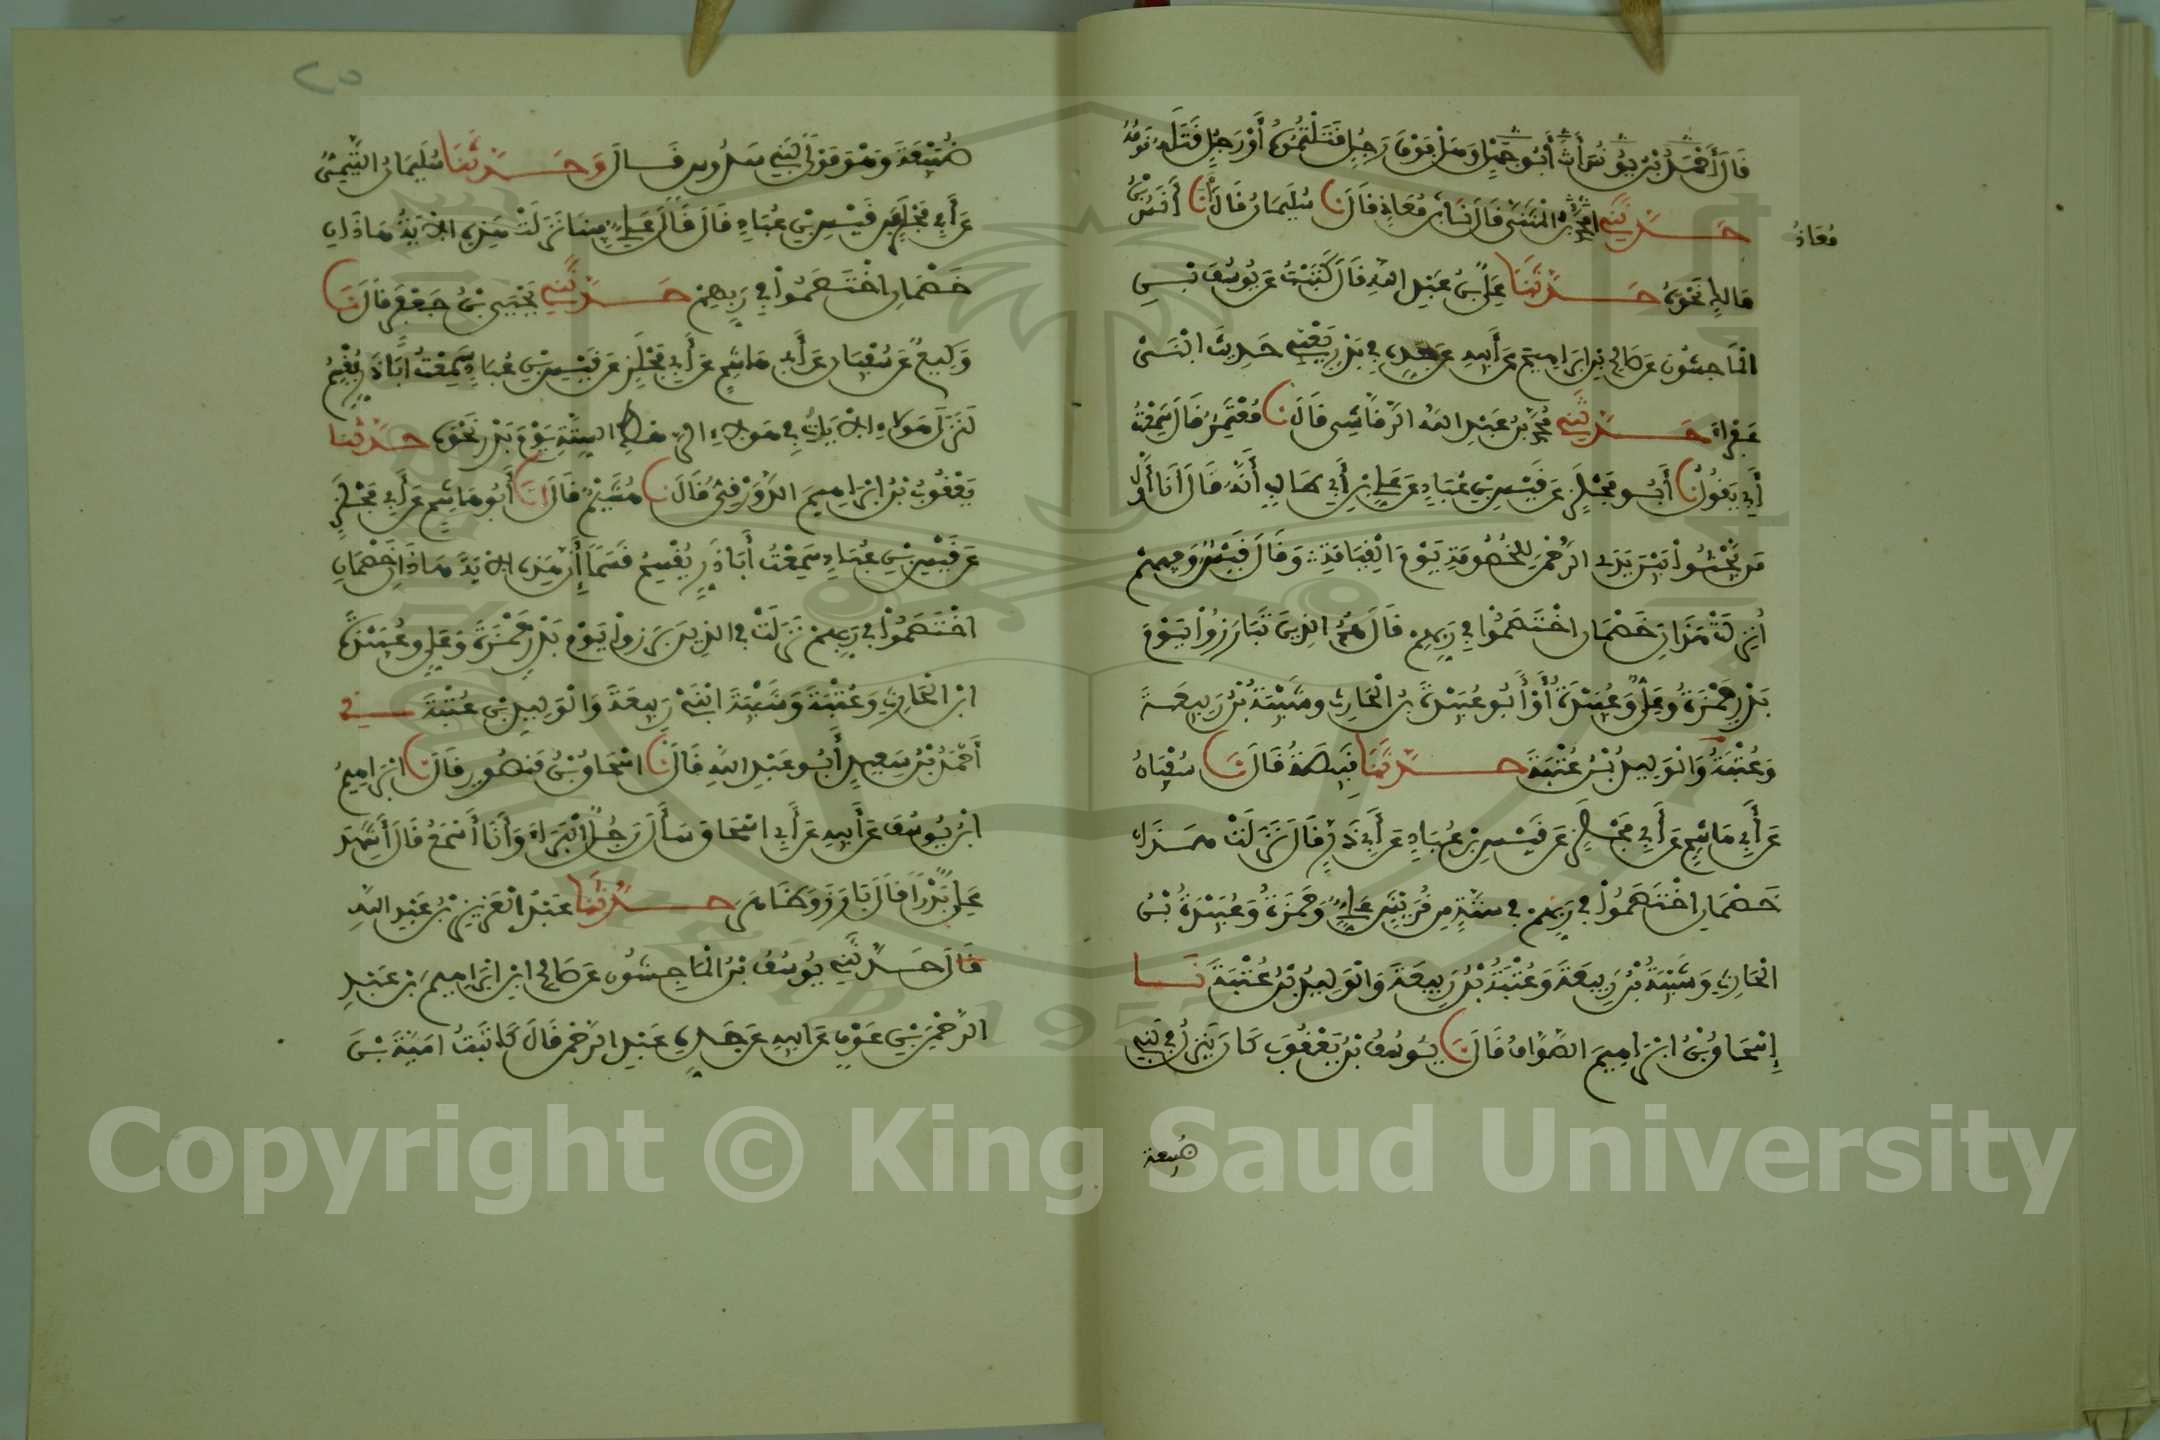 قَالَ أَحْمَدُ بْنُ يُونُسَ أَنْتَ أَبُو جَهْلٍ وَهَلْ فَوْقَ رَجُلٍ قَتَلْتُمُوهُ أَوْ رَجُلٍ قَتَلَهُ قَوْمُهُ
حَدَّثَنِي ابْنُ الْمُثَنَّى قَالَ نَا ابْنُ مُعَاذٍ قَالَ نَا سُلَيْمَانُ قَالَ نَا أَنَسُ بْنُ
مُعَاذُ
مَالِكٍ نَحْوَهُ حَدَّثَنَا عَلِيُّ بْنُ عَبْدِ اللهِ قَالَ كَتَبْتُ عَنْ يُوسُفَ بْنِ
الْمَاجِشُونِ عَنْ صَالِحِ بْنِ إبْرَاهِيمَ عَنْ أَبِيهِ عَنْ جَدِّهِ فِي بَدْرٍ يَعْنِي حَدِيثَ ابْنَيْ
عَفْرَاءَ حَدَّثَنِي مُحَمَّدُ بْنُ عَبْدِ اللهِ الرَّقَاشِي قَالَ نَا مُعْتَمِرٌ قَالَ سَمِعْتُ
أَبِي يَقُولُ نَا أَبُو مِجْلَزٍ عَنْ قَيْسِ بْنِ عُبَادٍ عَنْ عَلِيِّ بْنِ أَبِي طَالِبٍ أَنَّهُ قَالَ أَنَا أَوَّلُ
مَنْ يَجْثُوا بَيْنَ يَدَيِ الرَّحْمَنِ لِلْخُصُومَةِ يَوْمَ الْقِيَامَةِ وَقَالَ قَيْسٌ وَفِيهِمْ
أُنْزِلَتْ هَذَانِ خَصْمَانِ اخْتَصَمُوا فِي رَبِّهِمْ قَالَ هُمُ الذِينَ تَبَارَزُوا يَوْمَ
بَدْرٍ حَمْزَةُ وَعَلِيٌّ وَعُبَيْدَةُ أَوْ أَبُو عُبَيْدَةَ بْنُ الْحَارِثِ وَشَيْبَةُ بْنُ رَبِيعَةَ
وَعُتْبَةُ وَالْوَلِيدُ بْنُ عُتْبَةَ حَدَّثَنَا قَبِيصَةُ قَالَ نَا سُفْيَانُ
عَنْ أَبِي هَاشِمٍ عَنْ أَبِي مِجْلَزٍ عَنْ قَيْسِ بْنِ عُبَادٍ عَنْ أَبِي ذَرٍّ قَالَ نَزَلَتْ هَذَانِ
خَصْمَانِ اخْتَصَمُوا فِي رَبِّهِمْ فِي سِتَّةٍ مِنْ قُرَيْشٍ عَلِيٍّ وَحَمْزَةُ وَعُبَيْدَةُ بْنُ
الْحَارِثِ وَشَيْبَةُ بْنُ رَبِيعَةَ وَعُتْبَةُ بْنُ رَبِيعَةَ وَالْوَلِيدُ بْنُ عُتْبَةَ نَا
إِسْحَاقُ بْنُ إبْرَاهِيمَ الصَّوَّافُ قَالَ نَا يُوسُفُ بْنُ يَعْقُوبَ كَانَ يَنْزِلُ فِي بَنِي
ضُبَيْعَةَ
٢٥
ضُبَيْعَةَ وَهْوَ مَوْلًى لِبَنِي سَدُوسَ قَالَ وَحَدَّثَنَا سُلَيْمَانُ التَّيْمِيُّ
عَنْ أَبِي مِجْلَزٍ عَنْ قَيْسِ بْنِ عُبَادٍ قَالَ قَالَ عَلِيٌّ فِينَا نَزَلَتْ هَذِهِ الْآيَةُ هَاذَانِ
خَصْمَانِ اخْتَصَمُوا فِي رَبِّهِمْ حَدَّثَنِي يَحْيَى بْنُ جَعْفَرٍ قَالَ نَا
وَكِيعٌ عَنْ سُفْيَانَ عَنْ أَبِي هَاشِمٍ عَنْ أَبِي مِجْلَزٍ عَنْ قَيْسِ بْنِ عُبَادٍ سَمِعْتُ أَبَا ذَرٍّ يُقْسِمُ
لَنَزَلَ هَؤُلَاءِ الْآيَاتُ فِي هَؤُلَاءِ الرَّهْطِ السِّتَّةِ يَوْمَ بَدْرٍ نَحْوَهُ حَدَّثَنَا
يَعْقُوبُ بْنُ إبْرَاهِيمَ الدَّوْرَقِيُّ قَالَ نَا هُشَيْمٌ قَالَ أنَا أَبُو هَاشِمٍ عَنْ أَبِي مِجْلَزٍ
عَنْ قَيْسِ بْنِ عُبَادٍ سَمِعْتُ أَبَا ذَرٍّ يُقْسِمُ قَسَمًا إِنَّ هَذِهِ الْآيَةَ هَاذَانِ خَصْمَانِ
اخْتَصَمُوا فِي رَبِّهِمْ نَزَلَتْ فِي الذِينَ بَرَزُوا يَوْمَ بَدْرٍ حَمْزَةَ وَعَلِيٍّ وَعُبَيْدَةَ
ابْنِ الْحَارِثِ وَعُتْبَةَ وَشَيْبَةَ ابْنَيْ رَبِيعَةَ وَالْوَلِيدِ بْنِ عُتْبَةَ نِي
أَحْمَدُ بْنُ سَعِيدٍ أَبُو عَبْدِ اللهِ قَالَ نَا إسْحَاقُ بْنُ مَنْصُورٍ قَالَ نَا إبْرَاهِيمُ
ابْنُ يُوسُفَ عَنْ أَبِيهِ عَنْ أَبِي إسْحَاقَ سَأَلَ رَجُلٌ الْبَرَاءَ وَأَنَا أَسْمَعُ قَالَ أَشَهِدَ
عَلِيٌّ بَدْرًا قَالَ بَارَزَ وَظَاهَرَ حَدَّثَنَا عَبْدُ الْعَزِيزِ بْنُ عَبْدِ اللهِ
قَالَ حَدَّثَنِي يُوسُفُ بْنُ الْمَاجِشُونِ عَنْ صَالِحِ ابْنِ إبْرَاهِيمَ بْنِ عَبْدِ
الرَّحْمَنِ بْنِ عَوْفٍ عَنْ أَبِيهِ عَنْ جَدِّهِ عَبْدِ الرَّحْمَنِ قَالَ كَاتَبْتُ أُمَيَّةَ بْنَ
Copyright © King Saud University
1957